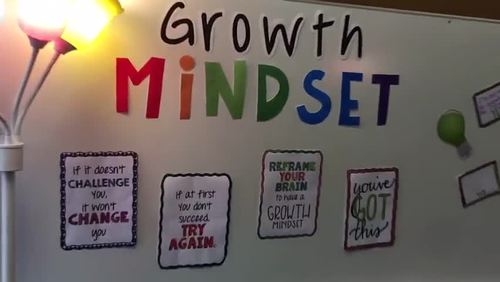 Growth
MiNDSET
If it doesn't
CHALLENGE
you,
it won't
CHANGE
you
If at first
you don't
succeed,
TRY
AGAIN.
REFRAME
YOUR
BRAIN
to have a
GROWTH
MINDSET
you've
GOT
this